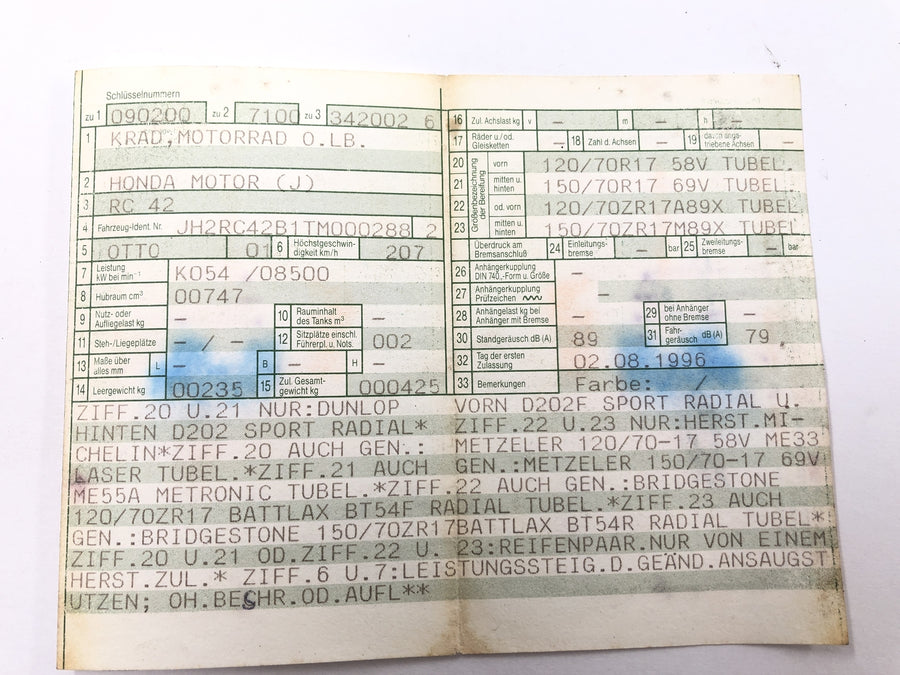 Schlüsselnummern
zu 1 090200 zu 2 7100 zu 3 342002 6
1 KRAD,MOTORRAD O.LB.
2 HONDA MOTOR (J)
3 RC 42
4 Fahrzeug-Ident. Nr. JH2RC42B1TM000288 2
5 OTTO 01 6 Höchstgeschwindigkeit km/h 207
7 Leistung kW bei min⁻¹ K054 /08500
8 Hubraum cm³ 00747
9 Nutz- oder Aufliegelast kg – 10 Rauminhalt des Tanks m³ –
11 Steh-/Liegeplätze – / – 12 Sitzplätze einschl. Führerpl. u. Nots. 002
13 Maße über alles mm L – B – H –
14 Leergewicht kg 00235 15 Zul. Gesamtgewicht kg 000425
16 Zul. Achslast kg v – m – h –
17 Räder u./od. Gleisketten – 18 Zahl d. Achsen – 19 davon angetriebene Achsen –
Größenbezeichnung der Bereifung
20 vorn 120/70R17 58V TUBEL.
21 mitten u. hinten 150/70R17 69V TUBEL.
22 od. vorn 120/70ZR17A89X TUBEL
23 mitten u. hinten 150/70ZR17M89X TUBEL
Überdruck am Bremsanschluß 24 Einleitungsbremse – bar 25 Zweileitungsbremse – bar
26 Anhängerkupplung DIN 740.-Form u. Größe –
27 Anhängerkupplung Prüfzeichen –
28 Anhängelast kg bei Anhänger mit Bremse – 29 bei Anhänger ohne Bremse –
30 Standgeräusch dB (A) 89 31 Fahrgeräusch dB (A) 79
32 Tag der ersten Zulassung 02.08.1996
33 Bemerkungen Farbe: /
ZIFF.20 U.21 NUR:DUNLOP VORN D202F SPORT RADIAL U.
HINTEN D202 SPORT RADIAL* ZIFF.22 U.23 NUR:HERST.MI-
CHELIN*ZIFF.20 AUCH GEN.: METZELER 120/70-17 58V ME33
LASER TUBEL.*ZIFF.21 AUCH GEN.:METZELER 150/70-17 69V
ME55A METRONIC TUBEL.*ZIFF.22 AUCH GEN.:BRIDGESTONE
120/70ZR17 BATTLAX BT54F RADIAL TUBEL.*ZIFF.23 AUCH
GEN.:BRIDGESTONE 150/70ZR17BATTLAX BT54R RADIAL TUBEL*
ZIFF.20 U.21 OD.ZIFF.22 U. 23:REIFENPAAR.NUR VON EINEM
HERST.ZUL.* ZIFF.6 U.7:LEISTUNGSSTEIG.D.GEÄND.ANSAUGST
UTZEN; OH.BESCHR.OD.AUFL**